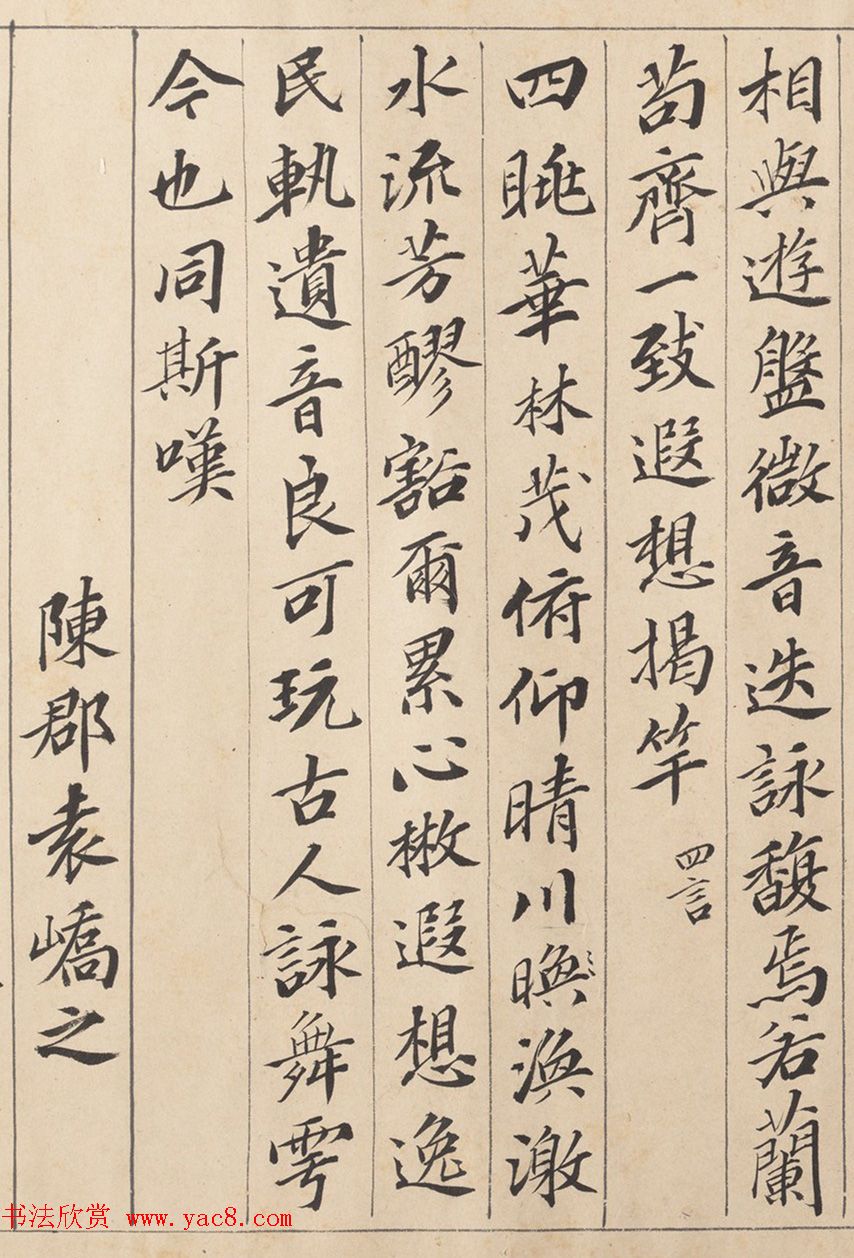 相與遊盤微音迭詠馥焉若蘭
苟齊一致遐想揭竿 四言
四眺華林茂俯仰晴川㬇渙激
水流芳醪豁爾累心散遐想逸
民軌遺音良可玩古人詠舞雩
今也同斯嘆
陳郡袁嶠之
书法欣赏 www.yac8.com